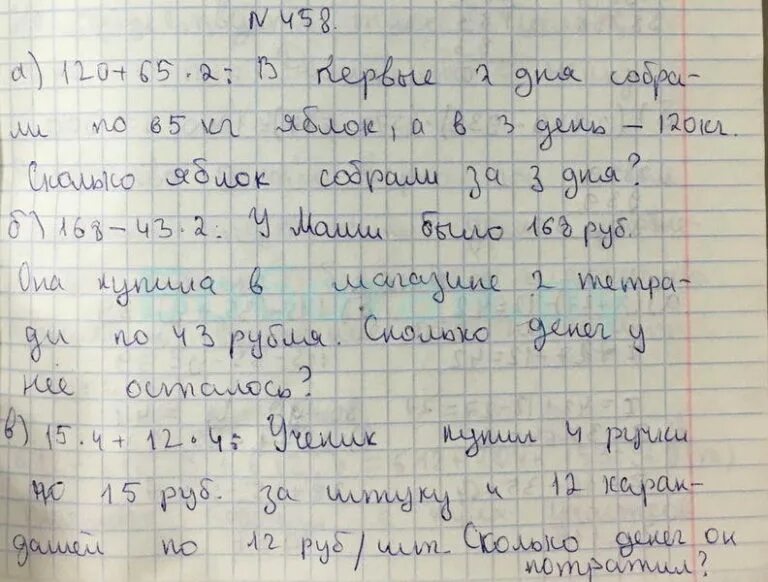 N 458.
а) 120+65·2: В первые 2 дня собра-
ли по 65 кг яблок, а в 3 день – 120кг.
Сколько яблок собрали за 3 дня?
б) 168–43·2: У Маши было 168 руб.
Она купила в магазине 2 тетра-
ди по 43 рубля. Сколько денег у
неё осталось?
в) 15·4+12·4: Ученик купил 4 ручки
по 15 руб. за штуку и 12 каран-
дашей по 12 руб/шт. Сколько денег он
потратил?